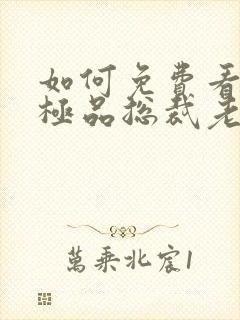 如何免費看
極品総裁老
萬乘北宸1